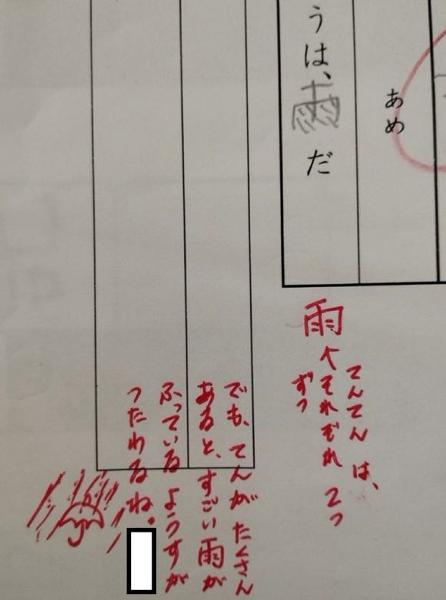 あめ
うは、雨だ
てんてんは、
雨
↑それぞれ2つ
ずつ
でも、てんがたくさん
あると、すごい雨が
ふっているようすが
つたわるね。